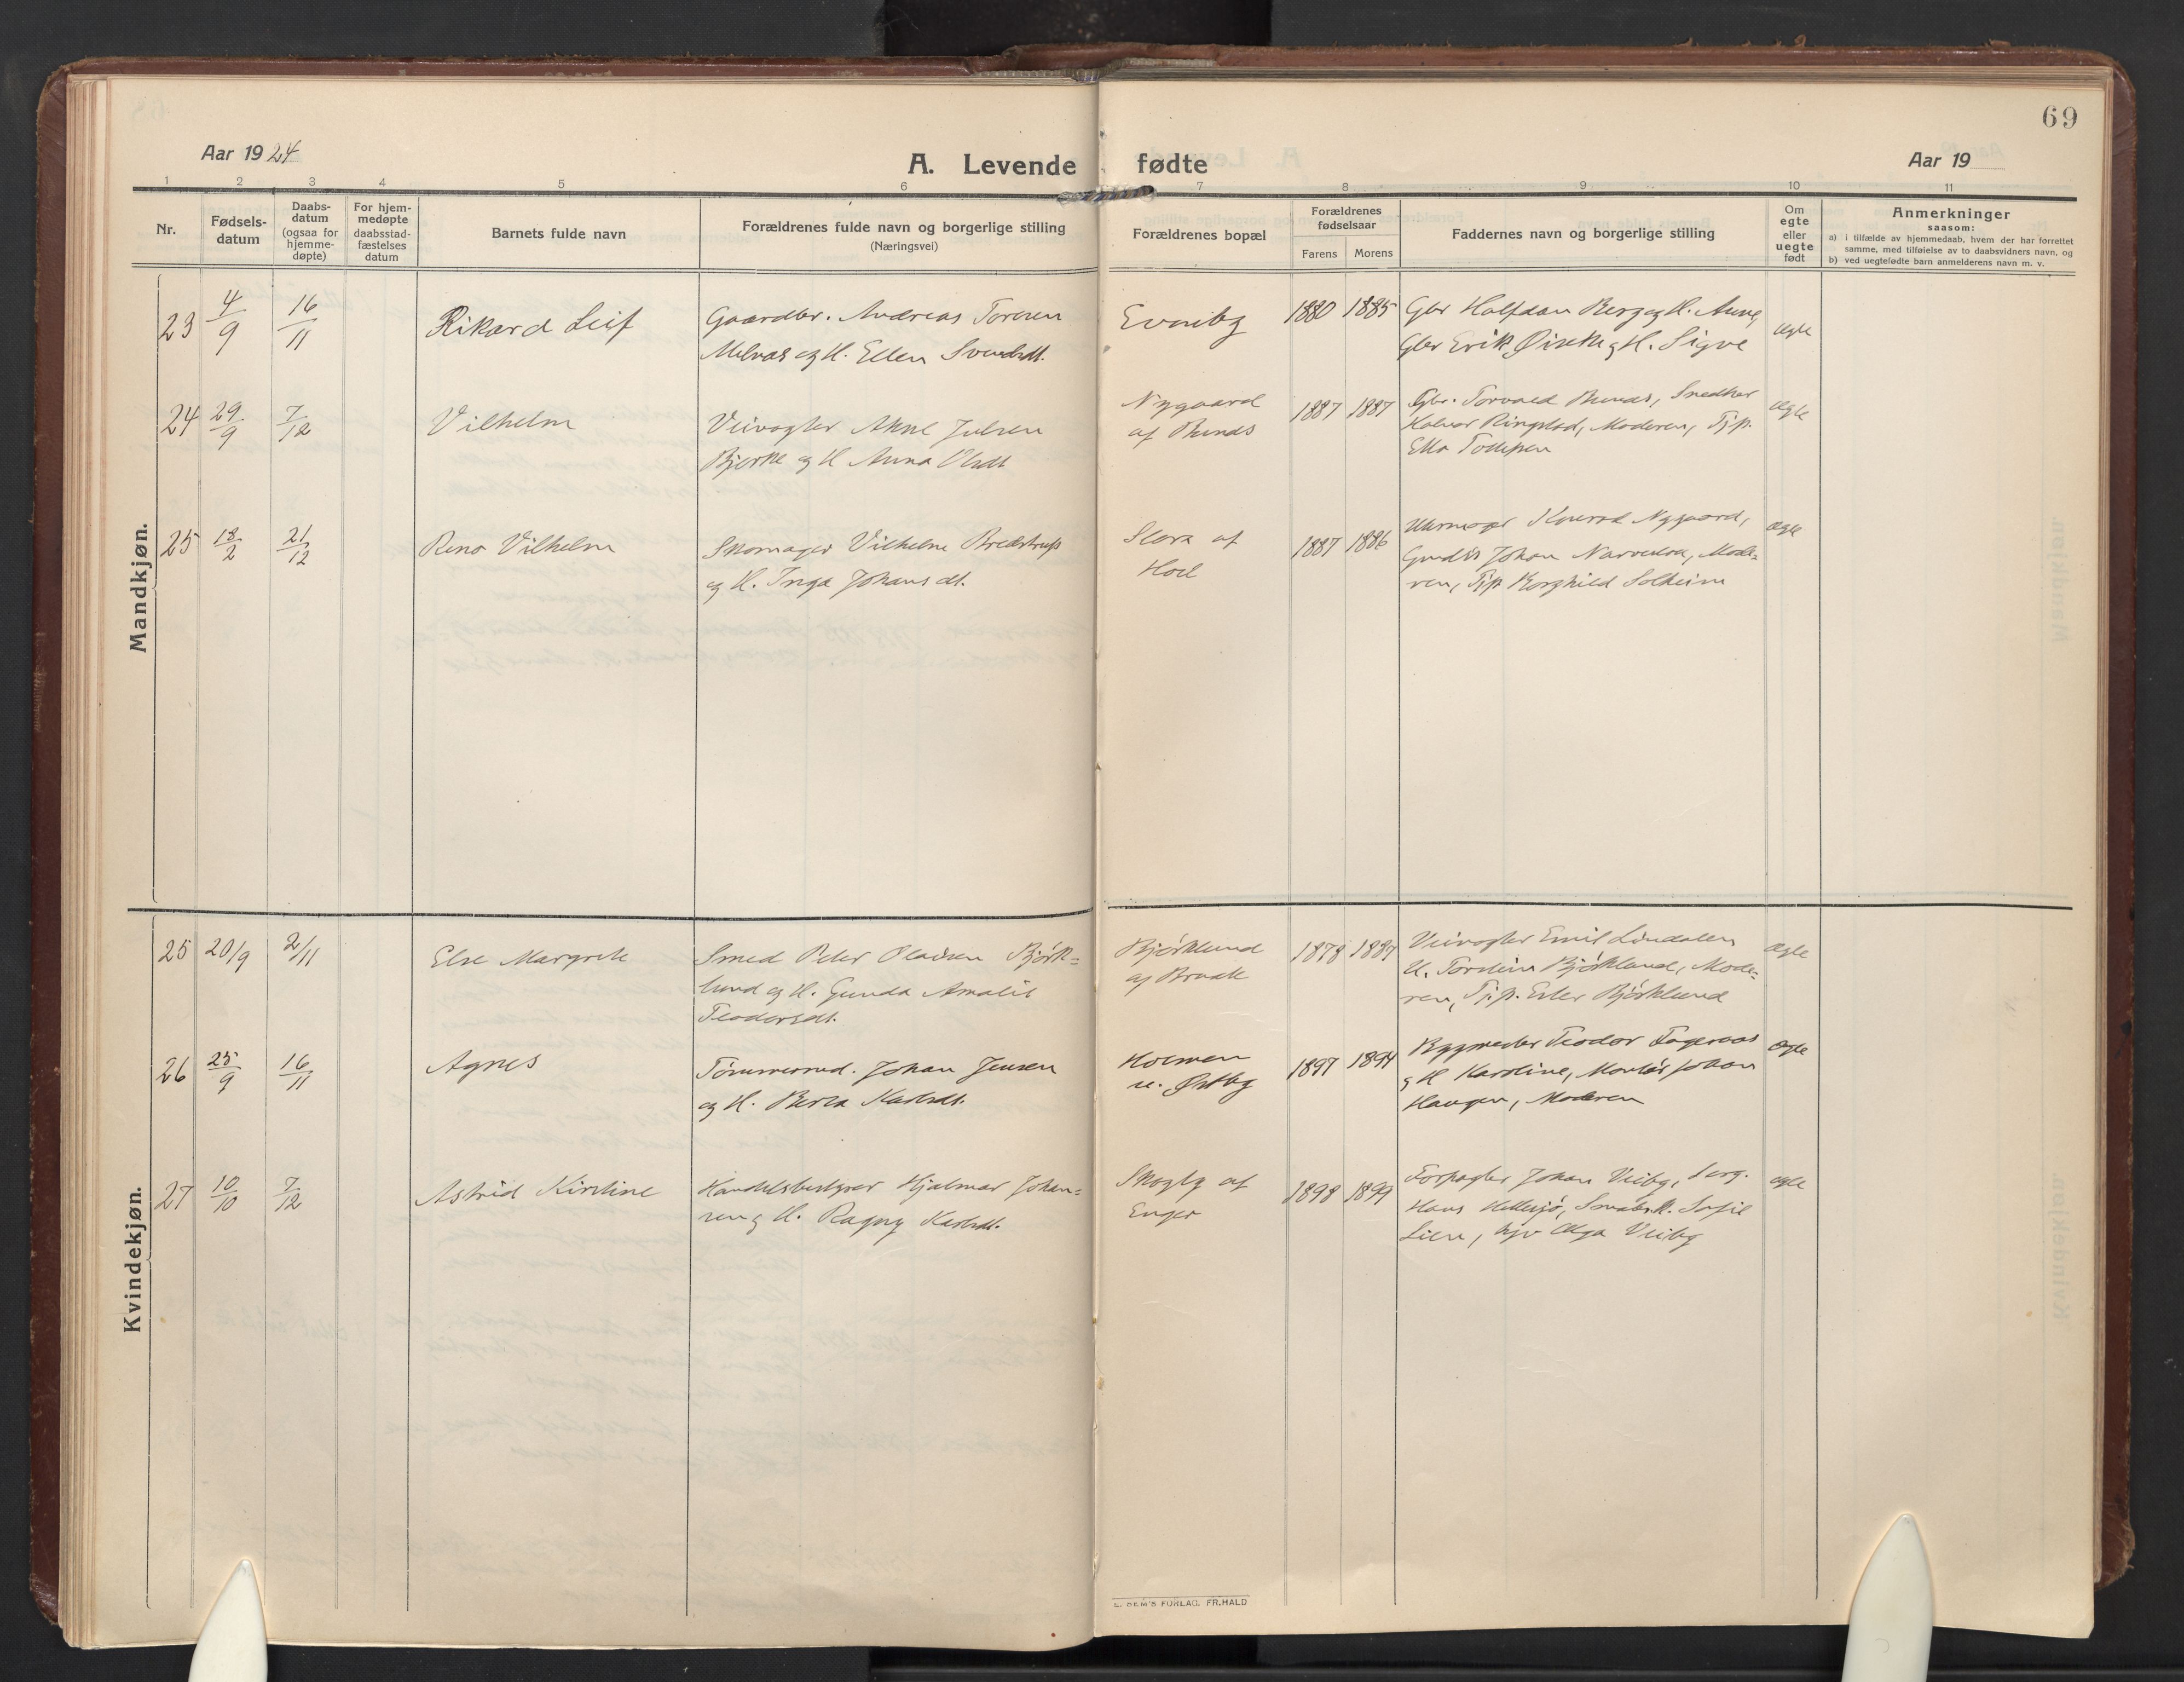 69
Aar 1924
A. Levende fødte
Aar 19
1 2 3 4 5 6 7 8 9 10 11
Nr.
Fødsels-
datum
Daabs-
datum
(ogsaa for
hjemme-
døpte)
For hjem-
medøpte
daabsstad-
fæstelses
datum
Barnets fulde navn
Forældrenes fulde navn og borgerlige stilling
(Næringsvei)
Forældrenes bopæl
Forældrenes
fødselsaar
Farens Morens
Faddernes navn og borgerlige stilling
Om
egte
eller
uegte
født
Anmerkninger
saasom:
a) i tilfælde av hjemmedaab, hvem der har forrettet
samme, med tilføielse av to daabsvidners navn, og
b) ved uegtefødte barn anmelderens navn m. v.
Mandkjøn.
23 4/9 16/11 Rikard Leif
Gaardbr. Andreas Toresen
Melvas og H. Ellen Svendsdt.
Evenby
1880 1885
Gbr Halfdan Berg og H. Anne,
Gbr Erik og H. Sigve
ægte
24 29/9 7/12 Vilhelm
Veivogter Julsen
Bjerke og H. Anna Olsdt
Nygaard
af Runds
1887 1887
Gbr. Torvald Runds, Snedker
Halvor Ringstad, Moderen, Tjp.
Ella
ægte
25 18/2 21/12 Reno Vilhelm
Skomager Vilhelm Bredstrup
og H. Inga Johansdt.
Slora af
Hoel
1887 1886
Uhrmager Konrad Nygaard,
Johan Narvedsa, Mode-
ren, Tjp Borghild Solheim
ægte
Kvindekjøn.
25 20/9 2/11 Else Margrete
Smed Peter Olausen Bjørk-
lund og H. Gunda Amalie
Teodorsdt.
Bjørklund
af Braate
1878 1887
Veivogter Emil Lindalen
U. Torstein Bjørklund, Mode-
ren, Tjp. Ester Bjørklund
ægte
26 25/9 16/11 Agnes
Tømmermd. Johan Jensen
og H. Berta Karlsdt.
Holmen
u. Østby
1897 1894
Byggmester Teodor Fageraas
og H Karoline, Montør Johan
Haugen, Moderen
ægte
27 10/10 7/12 Astrid Kirstine
Handelsbestyrer Hjalmar Johan-
sen og H. Ragny Karlsdt.
Skogly af
Enger
1898 1899
Forpagter Johan Veiby, Serg.
Hans Hellesjø, Smaabr.k. Sofie
Lien, Olga Veiby
ægte
E. SEM'S FORLAG. FR.HALD